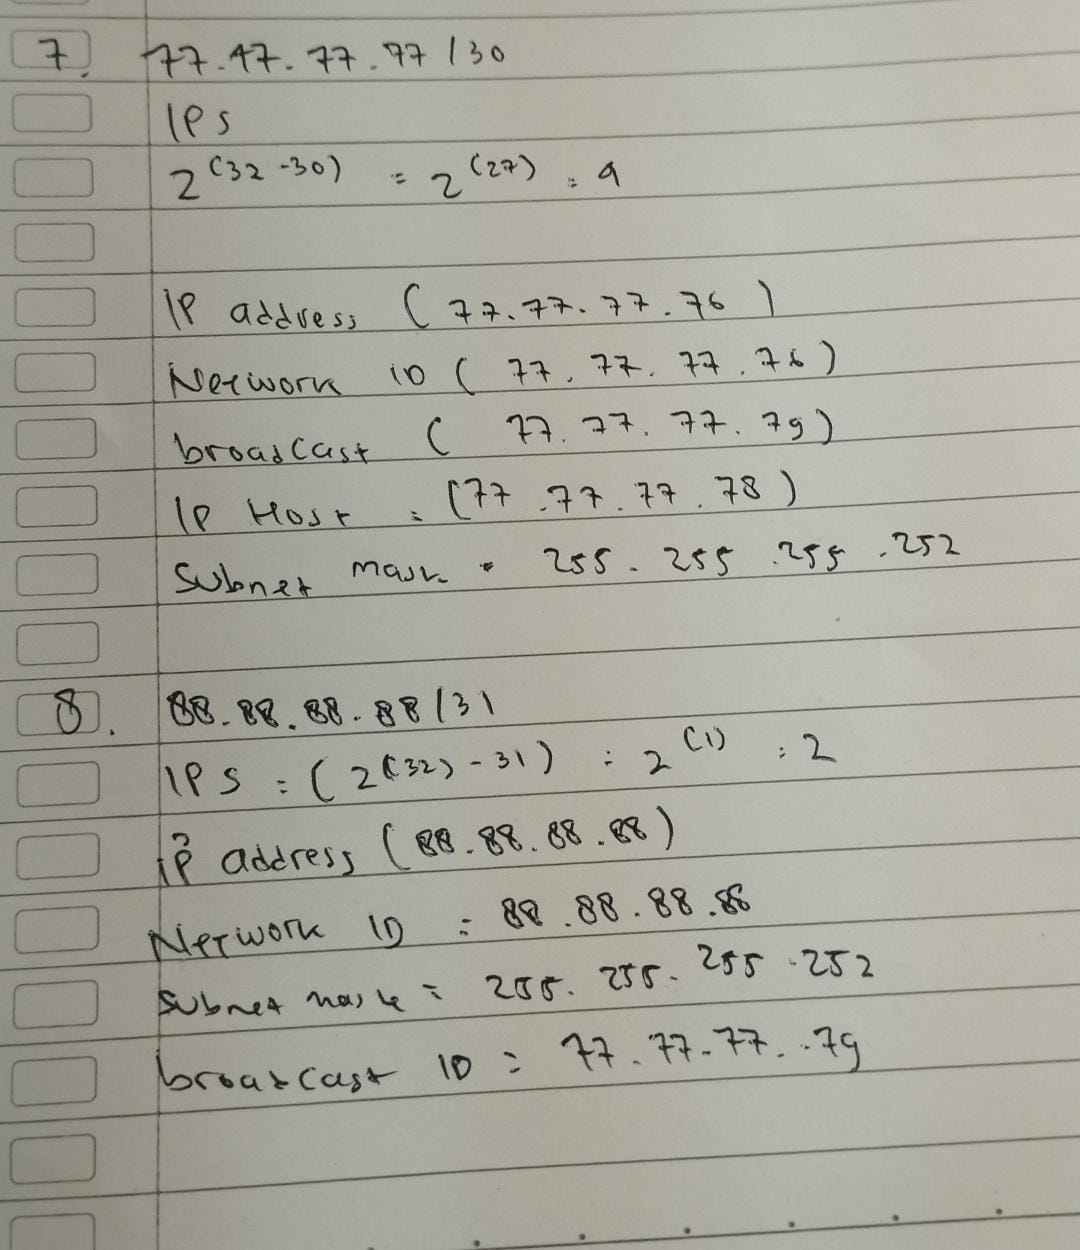 7. 77.47.77.77 /30
IPS
2^(32-30) = 2^(27) = 4
IP address ( 77.77.77.76 )
Network ID ( 77.77.77.76 )
broadcast ( 77.77.77.79 )
IP Host = (77.77.77.78 )
Subnet mask = 255.255.255.252
8. 88.88.88.88 /31
IPS = ( 2^((32)-31) = 2^(1) = 2
IP address ( 88.88.88.88 )
Network ID = 88.88.88.88
Subnet mask = 255.255.255.252
broadcast ID = 77.77.77..79